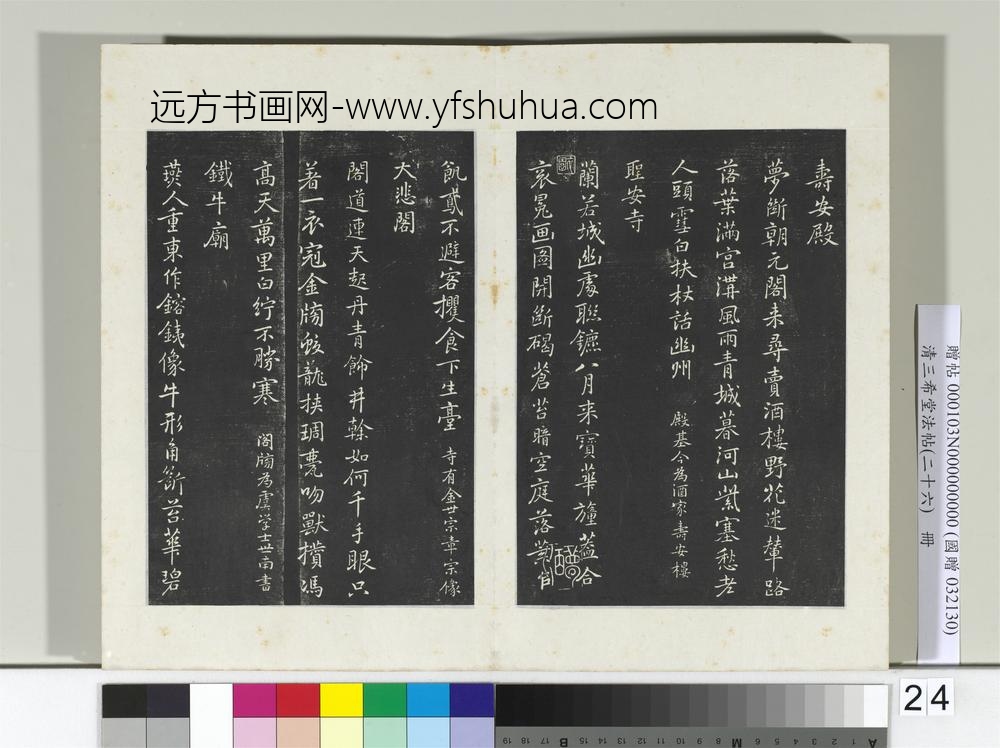 远方书画网-www.yfshuhua.com
壽安殿
夢斷朝元閣来尋賣酒樓野花迷輦路
落葉滿宮溝風雨青城暮河山紫塞愁老
人頭雪白扶杖話幽州 殿基今為酒家壽安樓
聖安寺
蘭若城幽處聯鑣八月来寶華旛蓋合
衮冕画圖開斷碣蒼苔暗空庭落葉
飢鳶不避客攫食下生臺 寺有金世宗章宗像
大悲閣
閣道連天起丹青飾井榦如何千手眼只
着一衣冠金牓蛟龍挾琱甍吻獸攢馮
高天萬里白紵不勝寒 閣牓為虞学士世南書
鐵牛廟
燕人重東作鎔鐵像牛形角斷苔華碧
贈帖 000103N000000000 (國贈 032130)
清三希堂法帖(二十六) 冊
24
A 1 2 3 4 5 6 M 8 9 10 11 12 13 14 15 B 17 18 19